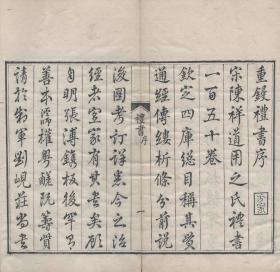 重鋟禮書序
宋陳祥道用之氏禮書
一百五十卷
欽定四庫總目稱其貫
通經傳縷析條分前說
後圖考訂詳悉今之治
經者室家有其書矣顧
自明張溥鋟板後罕有
善本儒權粵醝阮善貿
請於制軍劉峴莊尚書
禮書
序
一